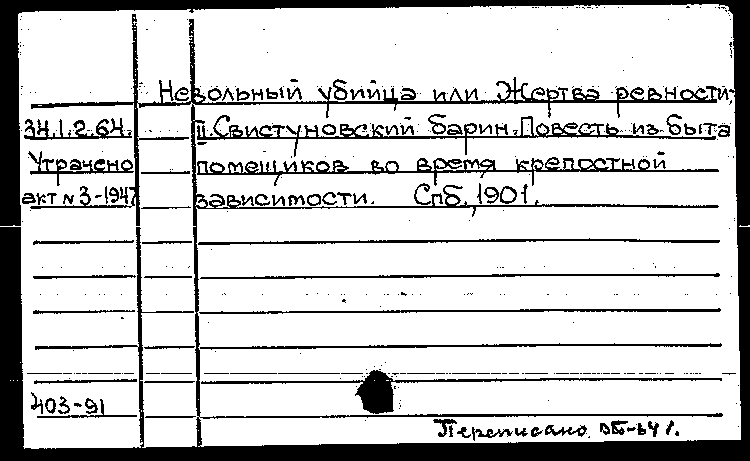 Невольный убийца или Жертва ревности;
34.1.2.64. II. Свистуновский барин. Повесть из быта
Утрачено помещиков во время крепостной
акт № 3-1947 зависимости. Спб., 1901.
403-91
Переписано